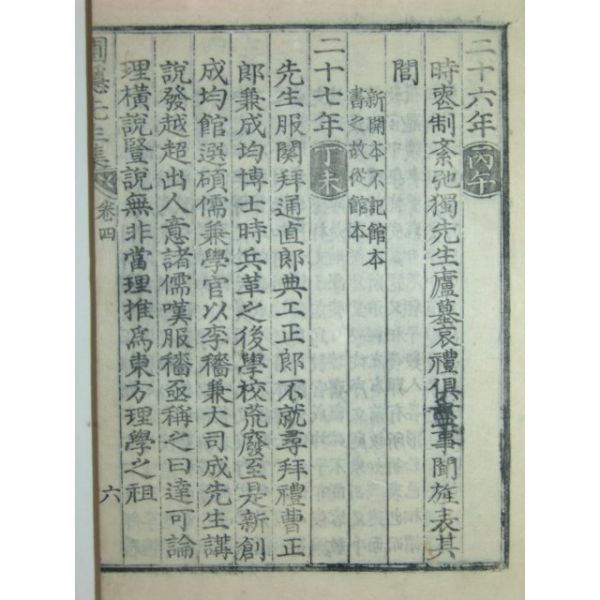 二十六年丙午
時喪制紊弛獨先生廬墓哀禮俱盡事聞旌表其
閭
新開本不記館本
書之故從館本
二十七年丁未
先生服闋拜通直郎典工正郎不就尋拜禮曹正
郎兼成均博士時兵革之後學校荒廢至是新創
成均館選碩儒兼學官以李穡兼大司成先生講
說發越超出人意諸儒嘆服穡亟稱之曰達可論
理橫說豎說無非當理推爲東方理學之祖
圃隱先生集 卷四 六